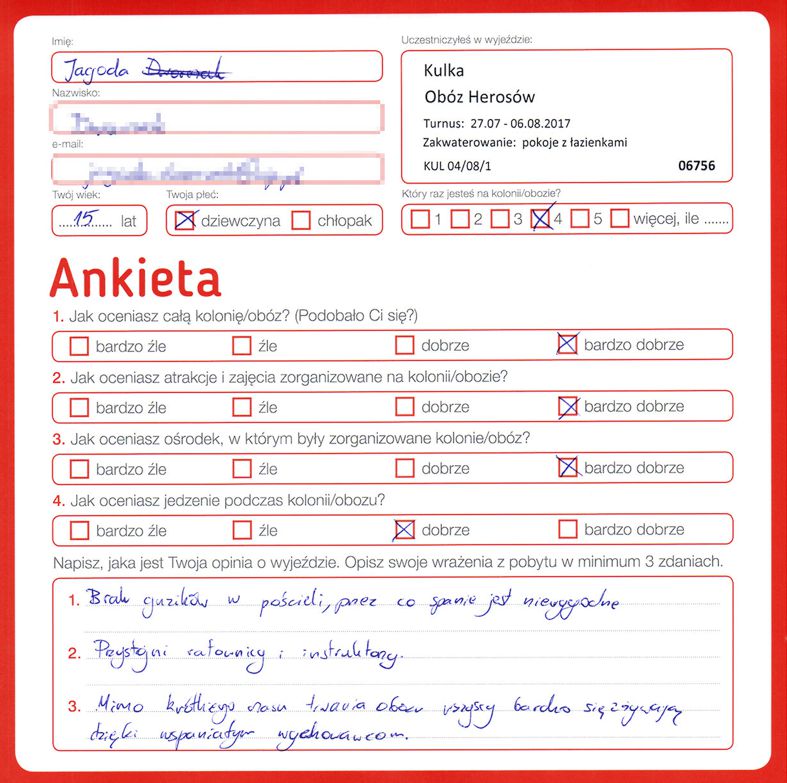 Imię:
Jagoda
Nazwisko:
e-mail:
Twój wiek:
15 lat
Twoja płeć:
dziewczyna chłopak
Uczestniczyłeś w wyjeździe:
Kulka
Obóz Herosów
Turnus: 27.07 - 06.08.2017
Zakwaterowanie: pokoje z łazienkami
KUL 04/08/1 06756
Który raz jesteś na kolonii/obozie?
1 2 3 4 5 więcej, ile .......
Ankieta
1. Jak oceniasz całą kolonię/obóz? (Podobało Ci się?)
bardzo źle źle dobrze bardzo dobrze
2. Jak oceniasz atrakcje i zajęcia zorganizowane na kolonii/obozie?
bardzo źle źle dobrze bardzo dobrze
3. Jak oceniasz ośrodek, w którym były zorganizowane kolonie/obóz?
bardzo źle źle dobrze bardzo dobrze
4. Jak oceniasz jedzenie podczas kolonii/obozu?
bardzo źle źle dobrze bardzo dobrze
Napisz, jaka jest Twoja opinia o wyjeździe. Opisz swoje wrażenia z pobytu w minimum 3 zdaniach.
1. Brak guzików w pościeli, przez co spanie jest niewygodne
2. Przystojni ratownicy i instruktorzy.
3. Mimo krótkiego czasu trwania obozu wszyscy bardzo się zżywają
dzięki wspaniałym wychowawcom.